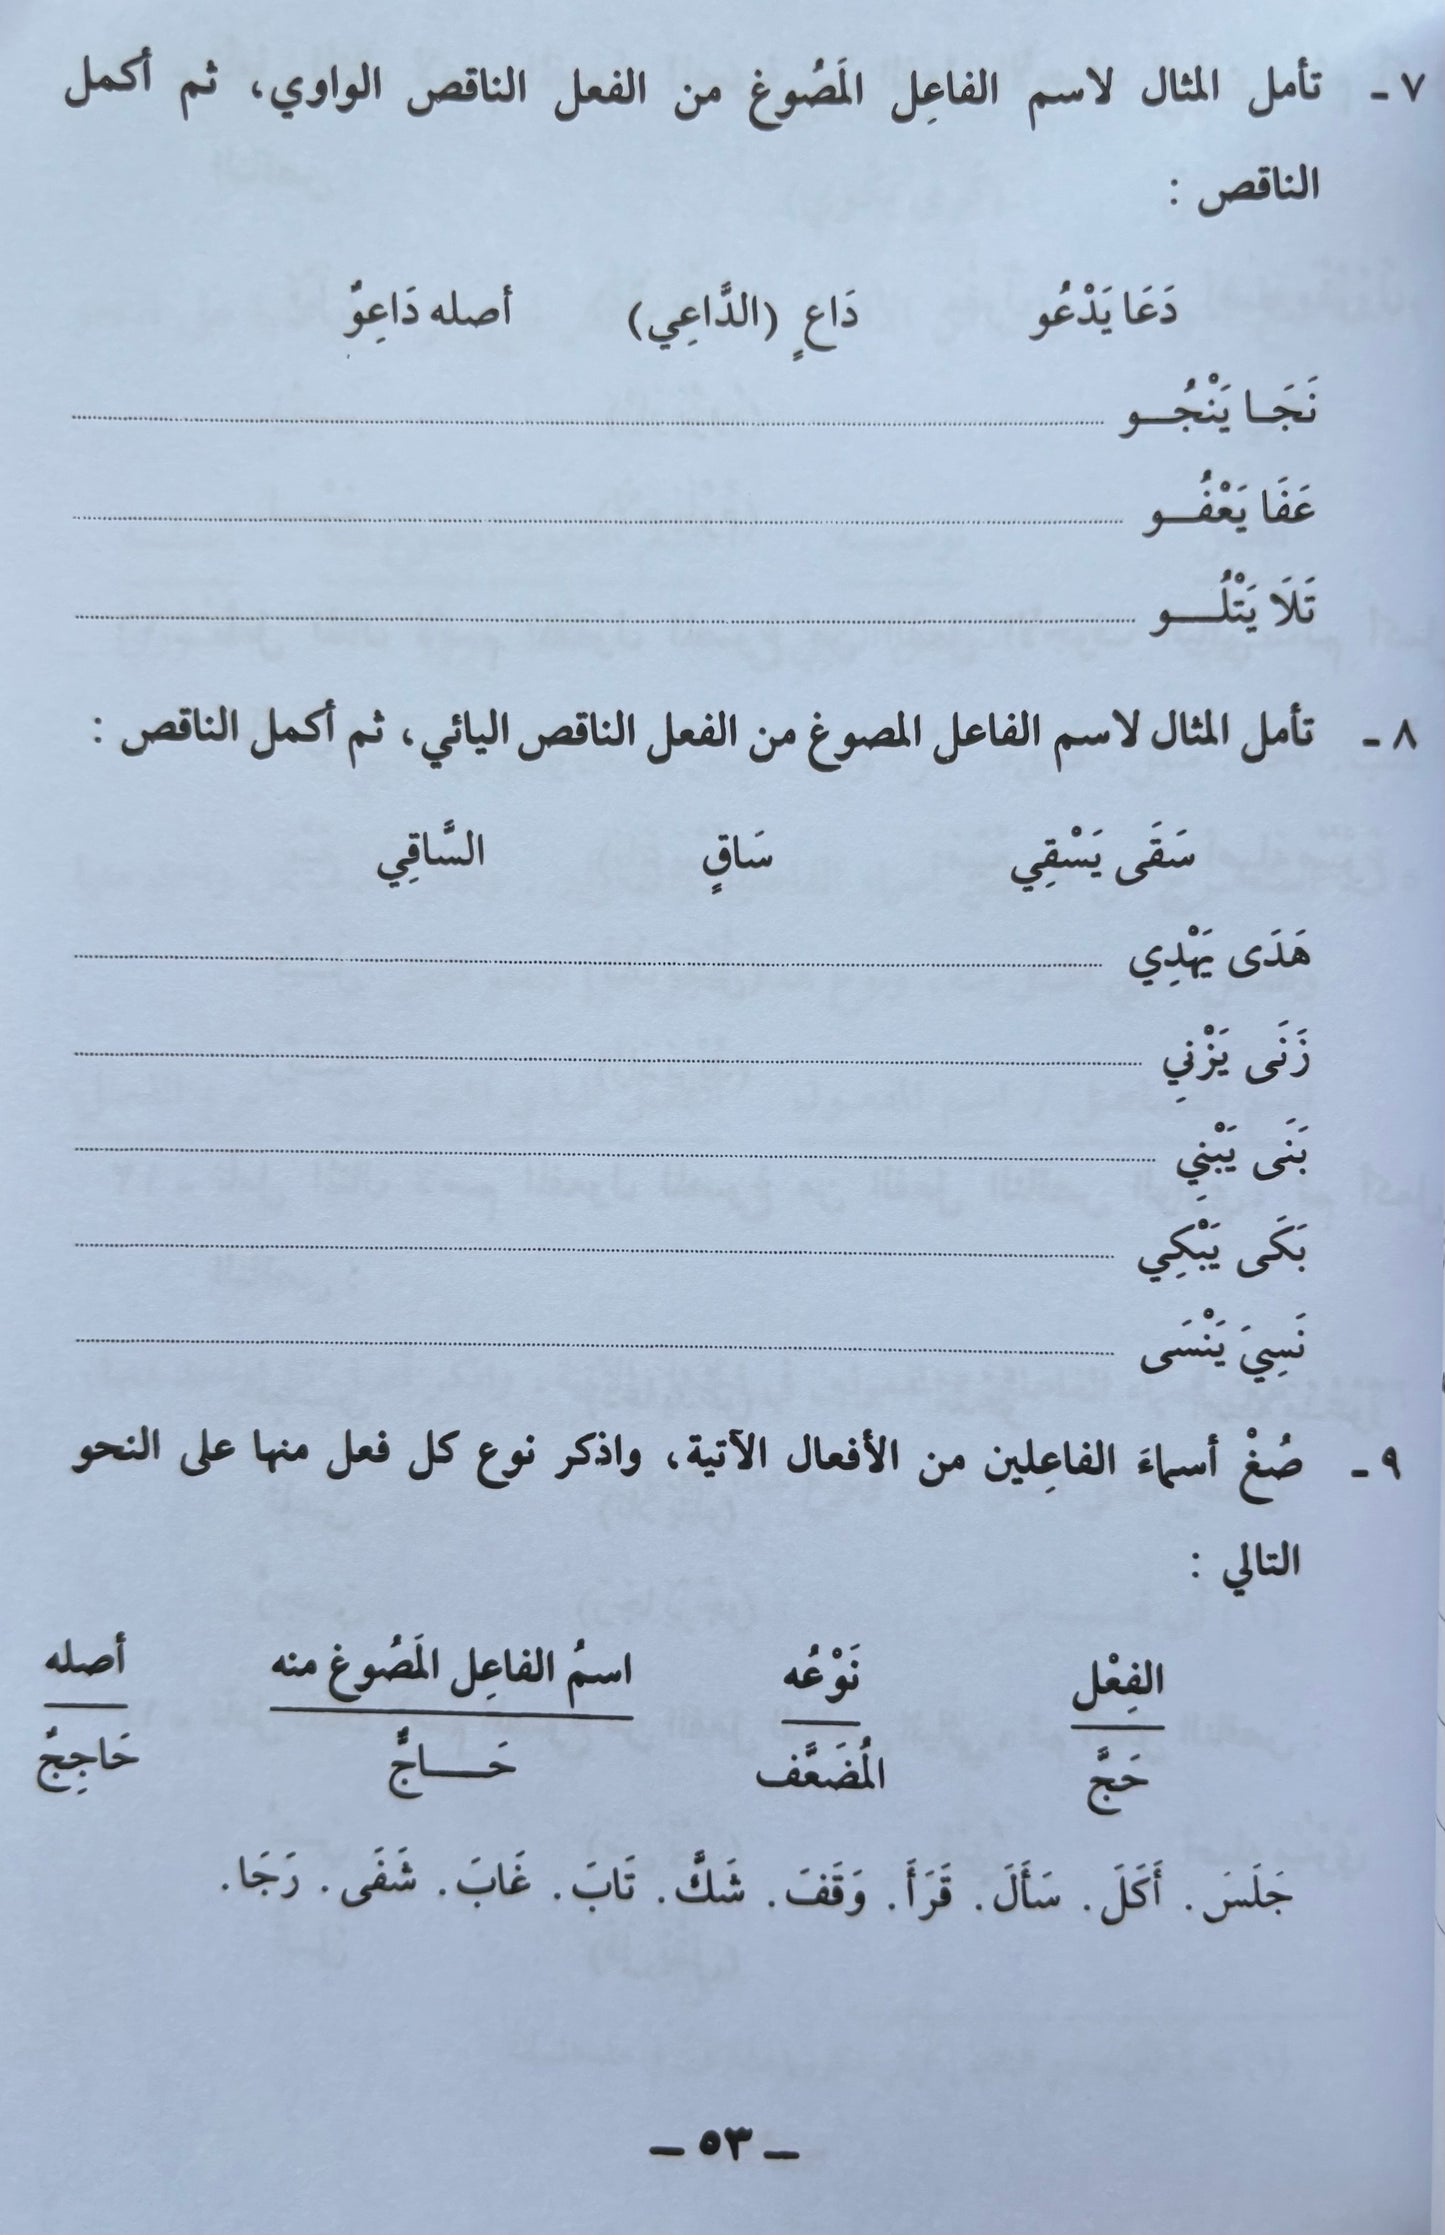 ٧ ـ تأمل المثال لاسم الفاعِل المَصُوغ من الفعل الناقص الواوي، ثم أكمل
الناقص :
دَعَا يَدْعُو دَاعٍ (الدَّاعِي) أصله دَاعِوٌ
نَجَـا يَنْجُـــو
عَفَا يَعْفُـــو
تَلَا يَتْلُـــو
٨ ـ تأمل المثال لاسم الفاعل المصوغ من الفعل الناقص اليائي، ثم أكمل الناقص :
سَقَى يَسْقِي سَاقٍ السَّاقِي
هَدَى يَهْدِي
زَنَى يَزْنِي
بَنَى يَبْنِي
بَكَى يَبْكِي
نَسِيَ يَنْسَى
٩ ـ صُغْ أسماءَ الفاعِلين من الأفعال الآتية، واذكر نوع كل فعل منها على النحو
التالي :
الفِعْل نَوْعُه اسمُ الفاعِل المَصُوغ منه أصله
حَجَّ المُضَعَّف حَـــاجٌّ حَاجِجٌ
جَلَسَ. أَكَلَ. سَأَلَ. قَرَأَ. وَقَفَ. شَكَّ. تَابَ. غَابَ. شَفَى. رَجَا.
ـ ٥٣ ـ